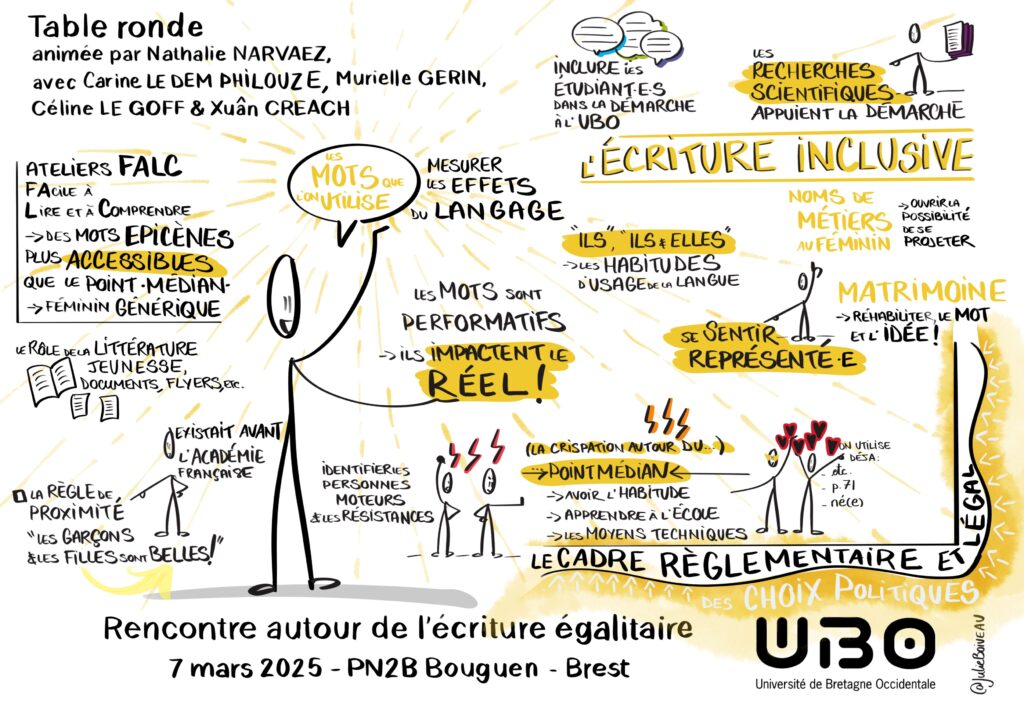 Table ronde
animée par Nathalie NARVAEZ,
avec Carine LE DEM PHILOUZE, Murielle GERIN,
Céline LE GOFF & Xuân CREACH
INCLURE LES
ÉTUDIANT·E·S
DANS LA DÉMARCHE
À L'UBO
LES
RECHERCHES
SCIENTIFIQUES
APPUIENT LA DÉMARCHE
L'ÉCRITURE INCLUSIVE
ATELIERS FALC
FACILE À
LIRE ET À COMPRENDRE
→ DES MOTS EPICÈNES
PLUS ACCESSIBLES
QUE LE POINT·MÉDIAN·
→ FÉMININ GÉNÉRIQUE
LES
MOTS QUE
L'ON UTILISE
MESURER
LES EFFETS
DU LANGAGE
"ILS", "ILS & ELLES"
→ LES HABITUDES
D'USAGE DE LA LANGUE
NOMS DE
MÉTIERS
AU FÉMININ
→ OUVRIR LA
POSSIBILITÉ
DE SE
PROJETER
MATRIMOINE
→ RÉHABILITER LE MOT
ET L'IDÉE !
SE SENTIR
REPRÉSENTÉ·E
LES MOTS SONT
PERFORMATIFS
→ ILS IMPACTENT LE
RÉEL !
LE RÔLE DE LA LITTÉRATURE
JEUNESSE,
DOCUMENTS, FLYERS, ETC.
EXISTAIT AVANT
L'ACADÉMIE
FRANÇAISE
LA RÈGLE DE
PROXIMITÉ
"LES GARÇONS
& LES FILLES SONT BELLES!"
IDENTIFIER LES
PERSONNES
MOTEURS
& LES RÉSISTANCES
(LA CRISPATION AUTOUR DU...)
→ POINT MÉDIAN ←
→ AVOIR L'HABITUDE
→ APPRENDRE À L'ÉCOLE
→ LES MOYENS TECHNIQUES
ON UTILISE
DÉJÀ :
- etc.
- p.71
- né(e)
LE CADRE RÈGLEMENTAIRE ET LÉGAL
DES CHOIX POLITIQUES
Rencontre autour de l'écriture égalitaire
7 mars 2025 - PN2B Bouguen - Brest
UBO
Université de Bretagne Occidentale
@JulieBoiveau